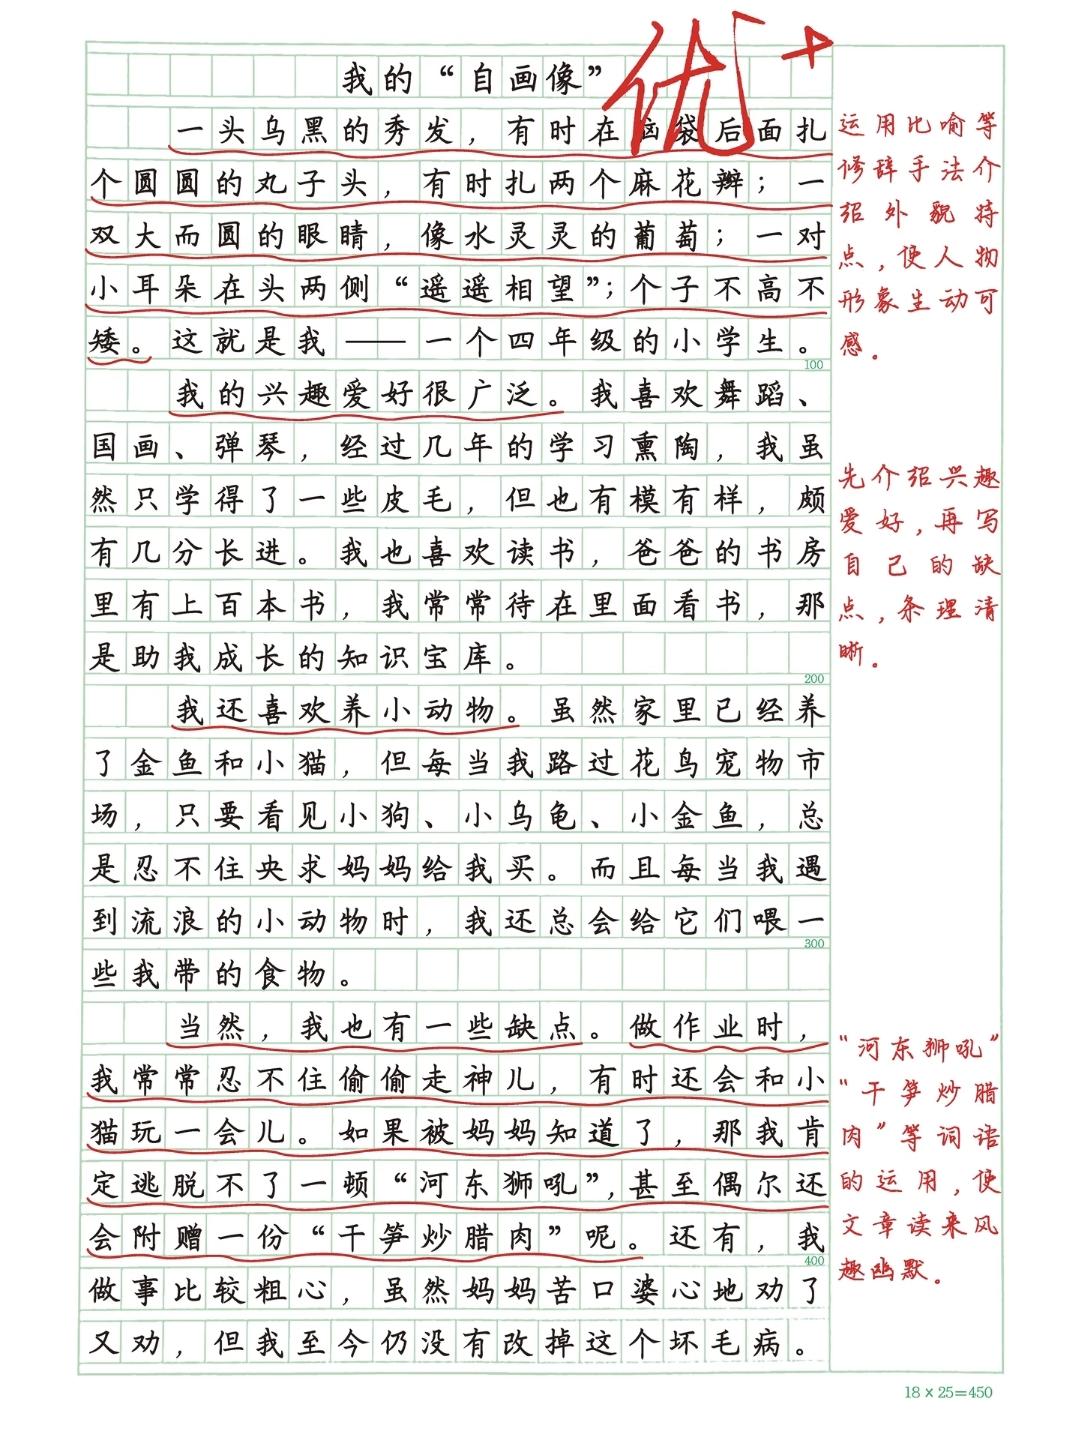 我的“自画像”
优+
一头乌黑的秀发，有时在脑袋后面扎
个圆圆的丸子头，有时扎两个麻花辫；一
双大而圆的眼睛，像水灵灵的葡萄；一对
小耳朵在头两侧“遥遥相望”；个子不高不
矮。这就是我——一个四年级的小学生。
100
我的兴趣爱好很广泛。我喜欢舞蹈、
国画、弹琴，经过几年的学习熏陶，我虽
然只学得了一些皮毛，但也有模有样，颇
有几分长进。我也喜欢读书，爸爸的书房
里有上百本书，我常常待在里面看书，那
是助我成长的知识宝库。
200
我还喜欢养小动物。虽然家里已经养
了金鱼和小猫，但每当我路过花鸟宠物市
场，只要看见小狗、小乌龟、小金鱼，总
是忍不住央求妈妈给我买。而且每当我遇
到流浪的小动物时，我还总会给它们喂一
300
些我带的食物。
当然，我也有一些缺点。做作业时，
我常常忍不住偷偷走神儿，有时还会和小
猫玩一会儿。如果被妈妈知道了，那我肯
定逃脱不了一顿“河东狮吼”，甚至偶尔还
会附赠一份“干笋炒腊肉”呢。还有，我
400
做事比较粗心，虽然妈妈苦口婆心地劝了
又劝，但我至今仍没有改掉这个坏毛病。
运用比喻等
修辞手法介
绍外貌特
点，使人物
形象生动可
感。
先介绍兴趣
爱好，再写
自己的缺
点，条理清
晰。
“河东狮吼”
“干笋炒腊
肉”等词语
的运用，使
文章读来风
趣幽默。
18×25=450